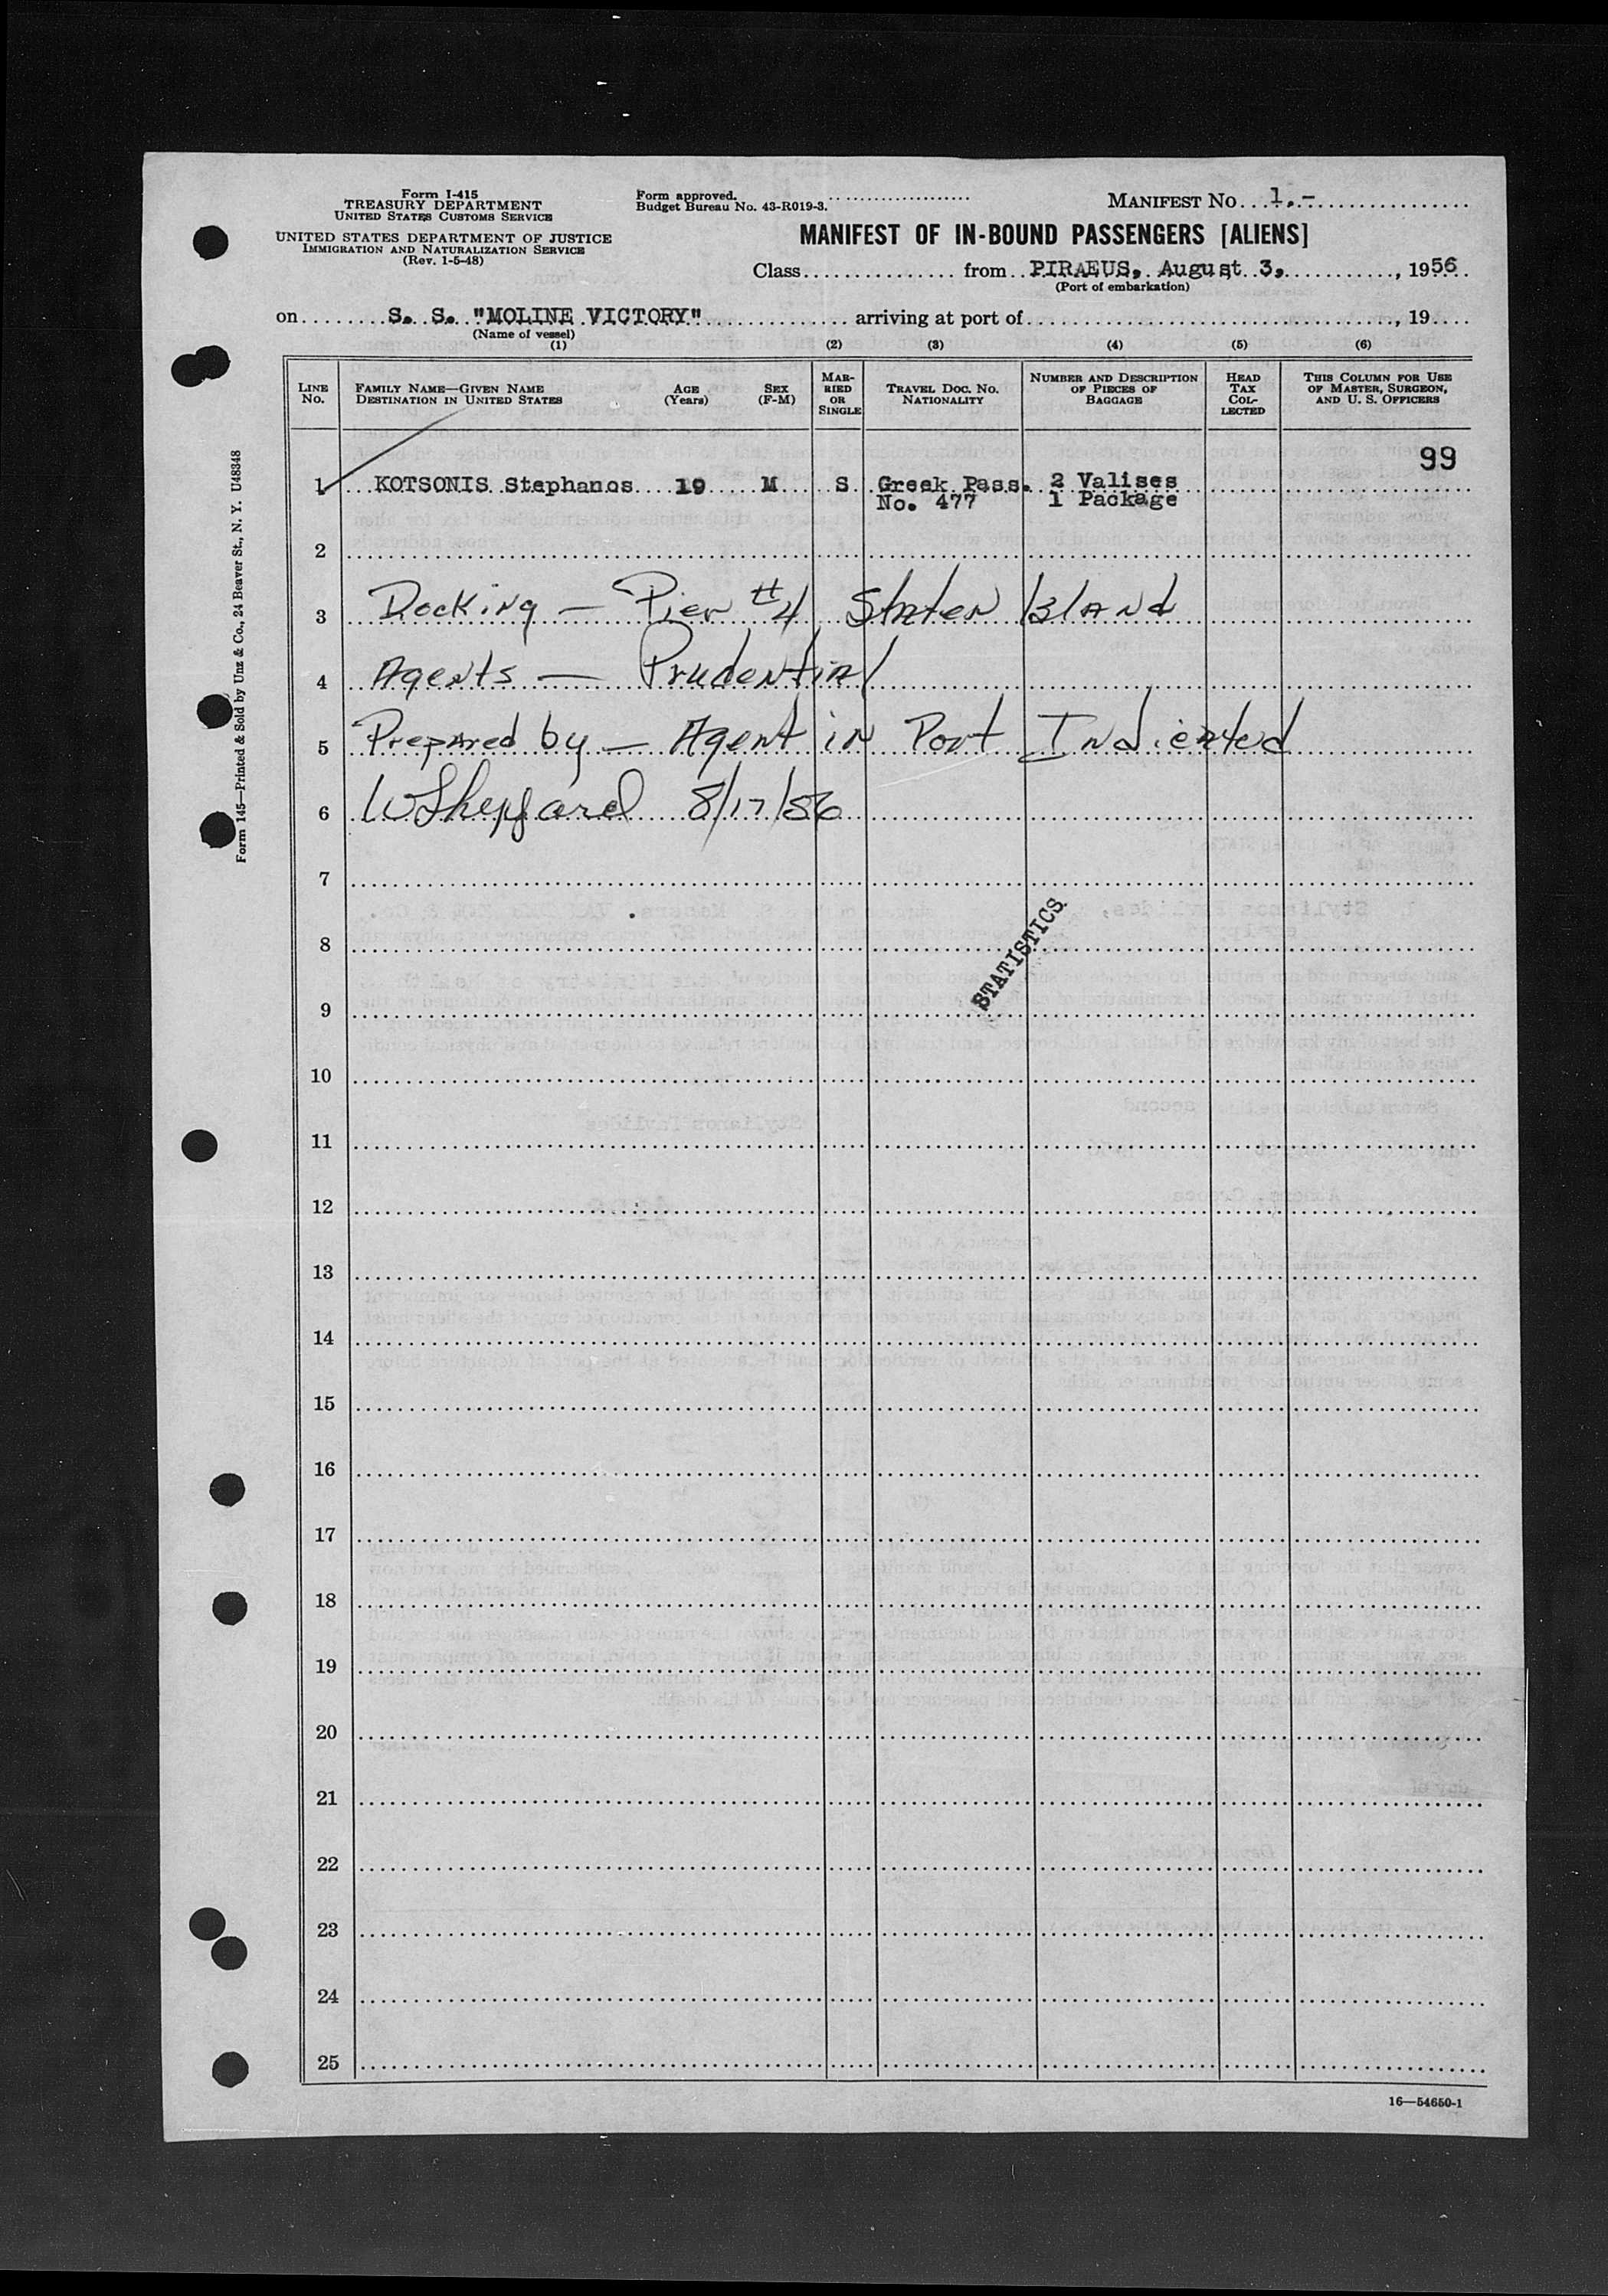 Form I-415
TREASURY DEPARTMENT
UNITED STATES CUSTOMS SERVICE
UNITED STATES DEPARTMENT OF JUSTICE
IMMIGRATION AND NATURALIZATION SERVICE
(Rev. 1-5-48)
Form approved.
Budget Bureau No. 43-R019-3.
MANIFEST NO. 1.-
MANIFEST OF IN-BOUND PASSENGERS [ALIENS]
Class from PIRAEUS, August 3, , 1956
(Port of embarkation)
on S. S. "MOLINE VICTORY" arriving at port of , 19
(Name of vessel)
(1) (2) (3) (4) (5) (6)
LINE No.
FAMILY NAME—GIVEN NAME
DESTINATION IN UNITED STATES
AGE (Years)
SEX (F-M)
MARRIED OR SINGLE
TRAVEL DOC. NO. NATIONALITY
NUMBER AND DESCRIPTION OF PIECES OF BAGGAGE
HEAD TAX COLLECTED
THIS COLUMN FOR USE OF MASTER, SURGEON, AND U. S. OFFICERS
99
1 KOTSONIS Stephanos 19 M S Greek Pass. 2 Valises
No. 477 1 Package
2
3 Docking — Pier #4 Staten Island
4 Agents — Prudential
5 Prepared by — Agent in Port Indicated
6 W Sheppard 8/17/56
7
8
STATISTICS
9
10
11
12
13
14
15
16
17
18
19
20
21
22
23
24
25
16—54650-1
Form 145—Printed & Sold by Unz & Co., 24 Beaver St., N. Y. U48348